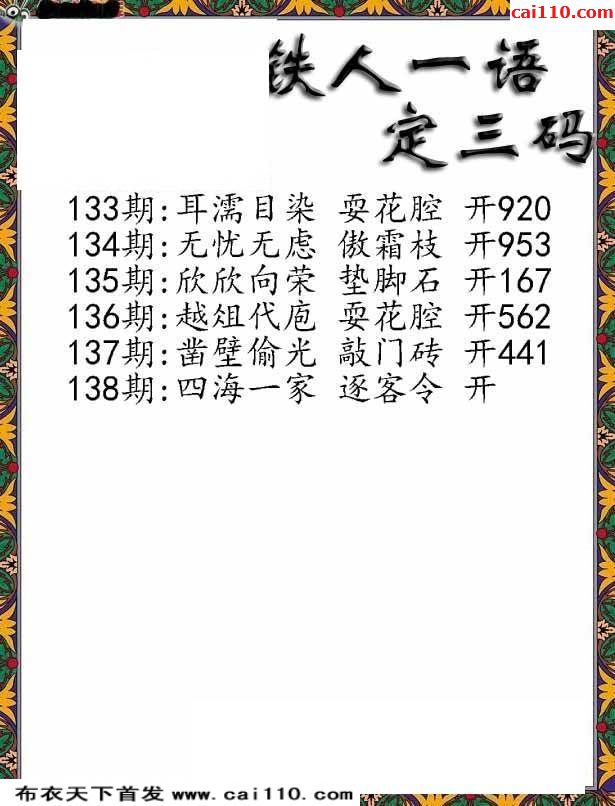 cai110.com
铁人一语
定三码
133期:耳濡目染 耍花腔 开920
134期:无忧无虑 傲霜枝 开953
135期:欣欣向荣 垫脚石 开167
136期:越俎代庖 耍花腔 开562
137期:凿壁偷光 敲门砖 开441
138期:四海一家 逐客令 开
布衣天下首发 www.cai110.com